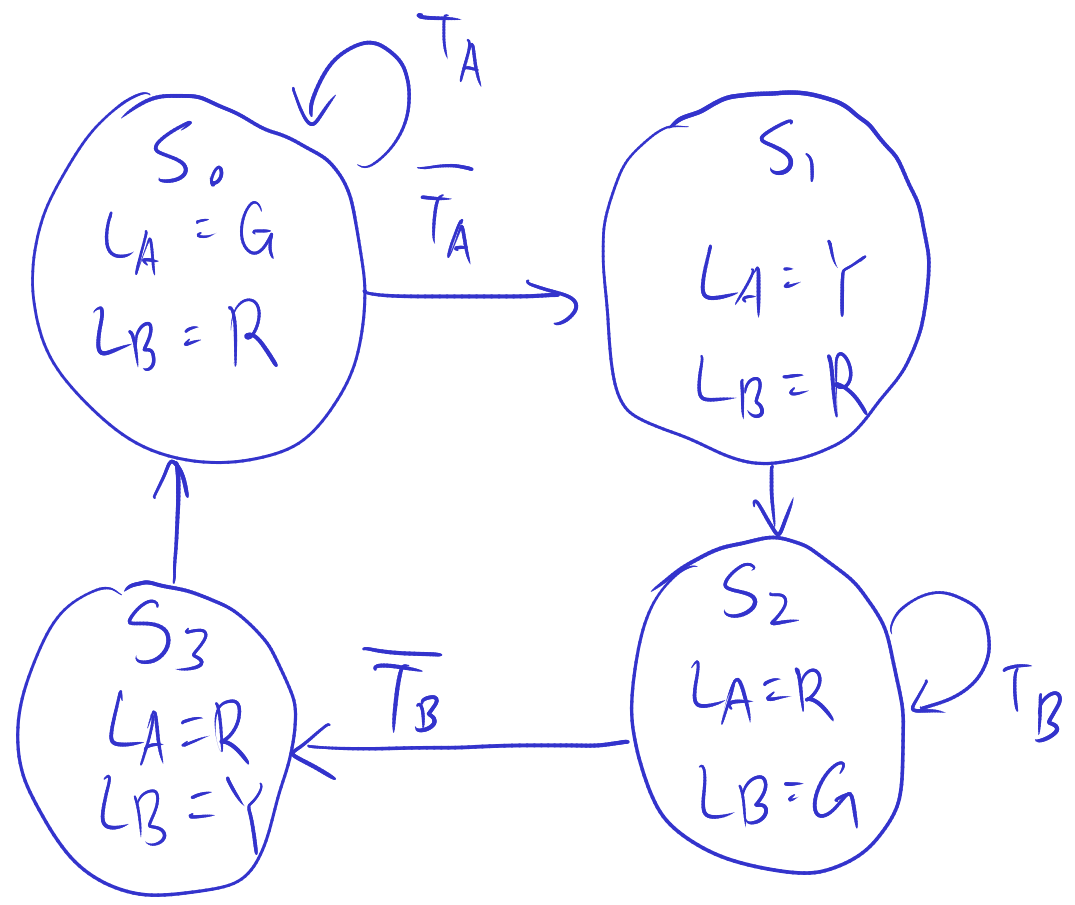 T_A
S_0
L_A = G
L_B = R
T̅_A
S_1
L_A = Y
L_B = R
S_2
L_A = R
L_B = G
T_B
T̅_B
S_3
L_A = R
L_B = Y